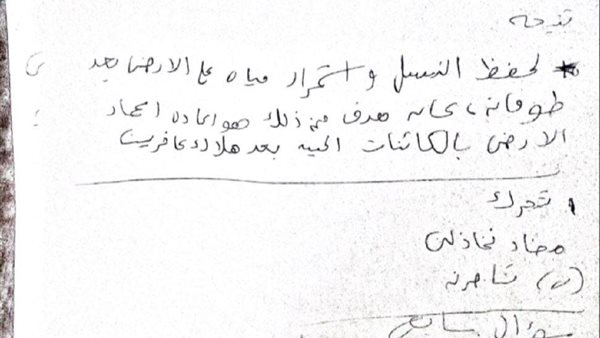 نتيجه
* لحفظ النسل واستمرار حياه على الارض بعد
طوفان، كان هدف من ذلك هو اعاده اعمار
الارض بالكائنات الحيه بعد هلاك كافرين
تحرك
مضاد تخاذل
(ب) شاجرنه
سؤال سابع